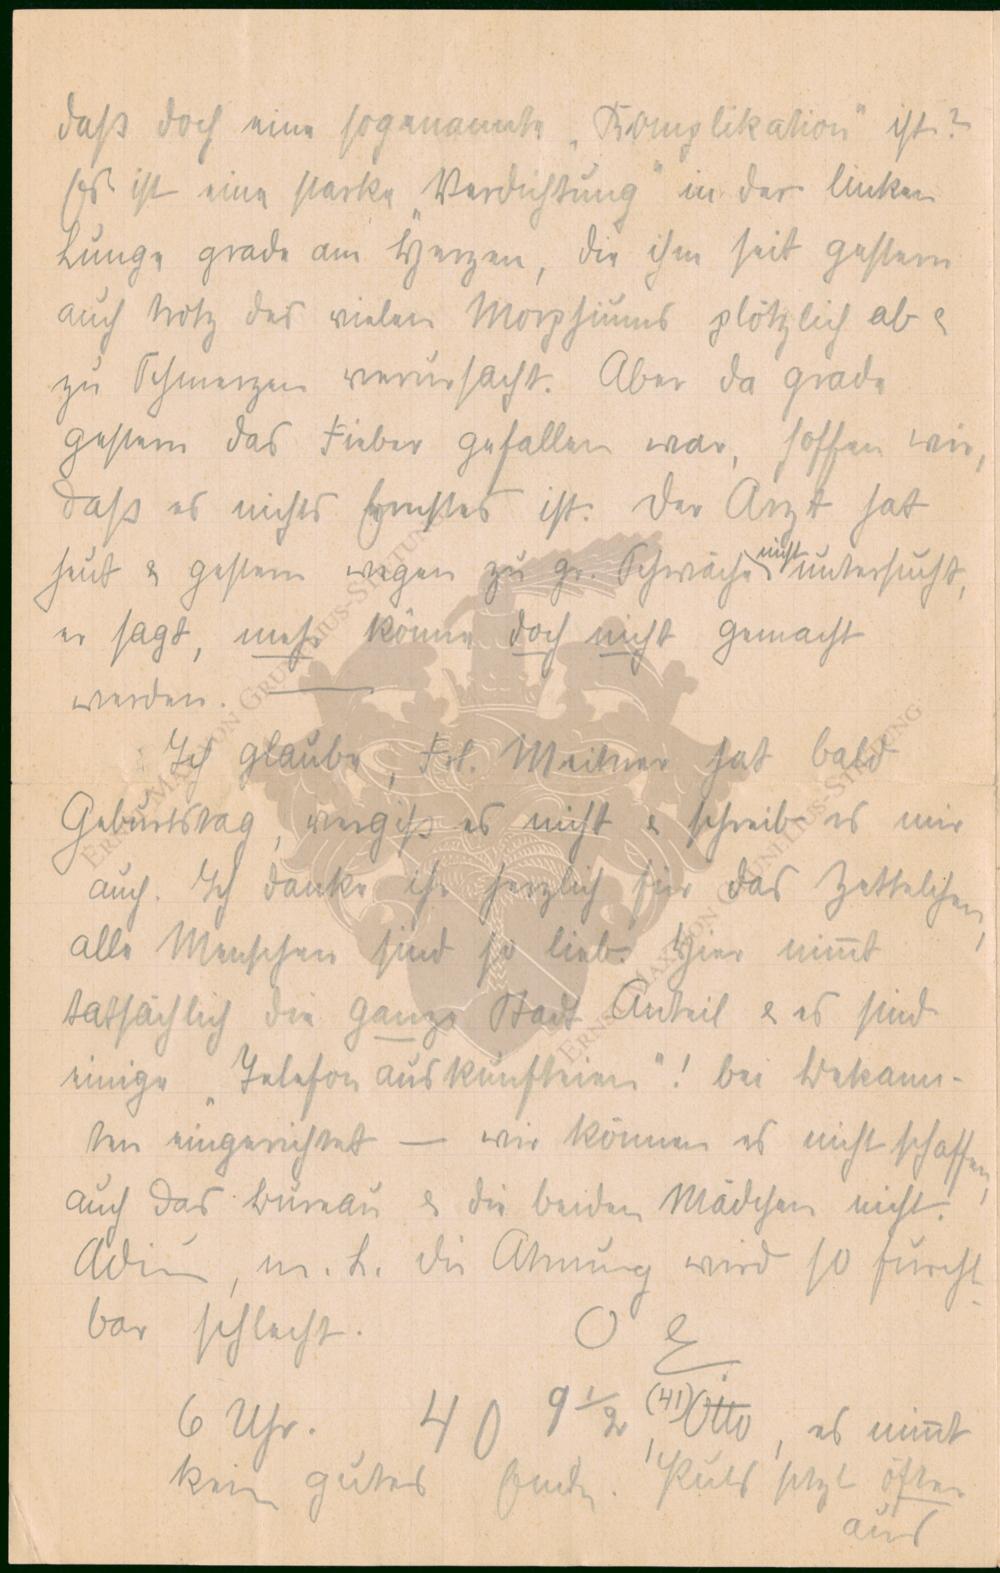 daß doch eine sogenannte „Komplikation" ist?
Es ist eine starke „Verdichtung" in der linken
Lunge grade am Herzen, die ihm seit gestern
auch trotz des vielen Morphiums plötzlich ab &
zu Schmerzen verursacht. Aber da grade
gestern das Fieber gefallen war, hoffen wir,
daß es nichts Ernstes ist. Der Arzt hat
heut & gestern wegen zu gr. Schwäche nicht untersucht,
er sagt, mehr könne doch nicht gemacht
werden. —
Ich glaube, Frl. Meitner hat bald
Geburtstag, vergiß es nicht & schreibe es mir
auch. Ich danke ihr herzlich für das Zettelchen,
alle Menschen sind so lieb. Hier nim̄t
tatsächlich die ganze Stadt Anteil & es sind
einige „Telefonauskunfteien"! bei Bekann-
ten eingerichtet — wir können es nicht schaffen,
auch das Bureau & die beiden Mädchen nicht.
Adieu, m. L. die Atmung wird so furcht-
bar schlecht.
O E.
6 Uhr. 40 9 1/2 (41) Otto, es nim̄t
kein gutes Ende. Puls setzt öfter
aus
ERNST MAX VON GRUNELIUS-STIFTUNG
ERNST MAX VON GRUNELIUS-STIFTUNG